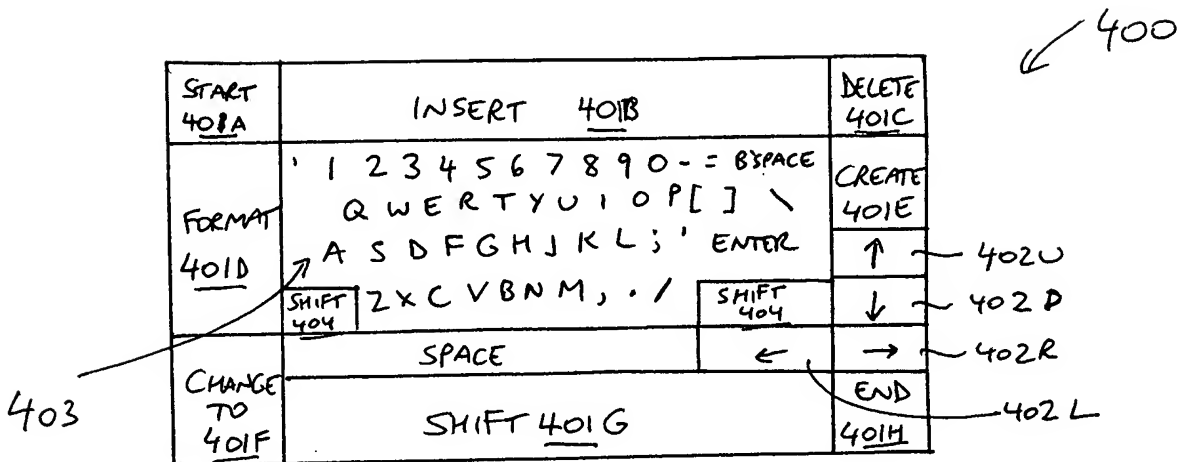 400
START
401A
INSERT 401B
DELETE
401C
FORMAT
401D
` 1 2 3 4 5 6 7 8 9 0 - = B'SPACE
Q W E R T Y U I O P [ ] \
A S D F G H J K L ; ' ENTER
SHIFT
404
Z X C V B N M , . /
SHIFT
404
CREATE
401E
↑
402U
↓
402D
SPACE
←
→
402R
403
CHANGE
TO
401F
SHIFT 401G
END
401H
402L